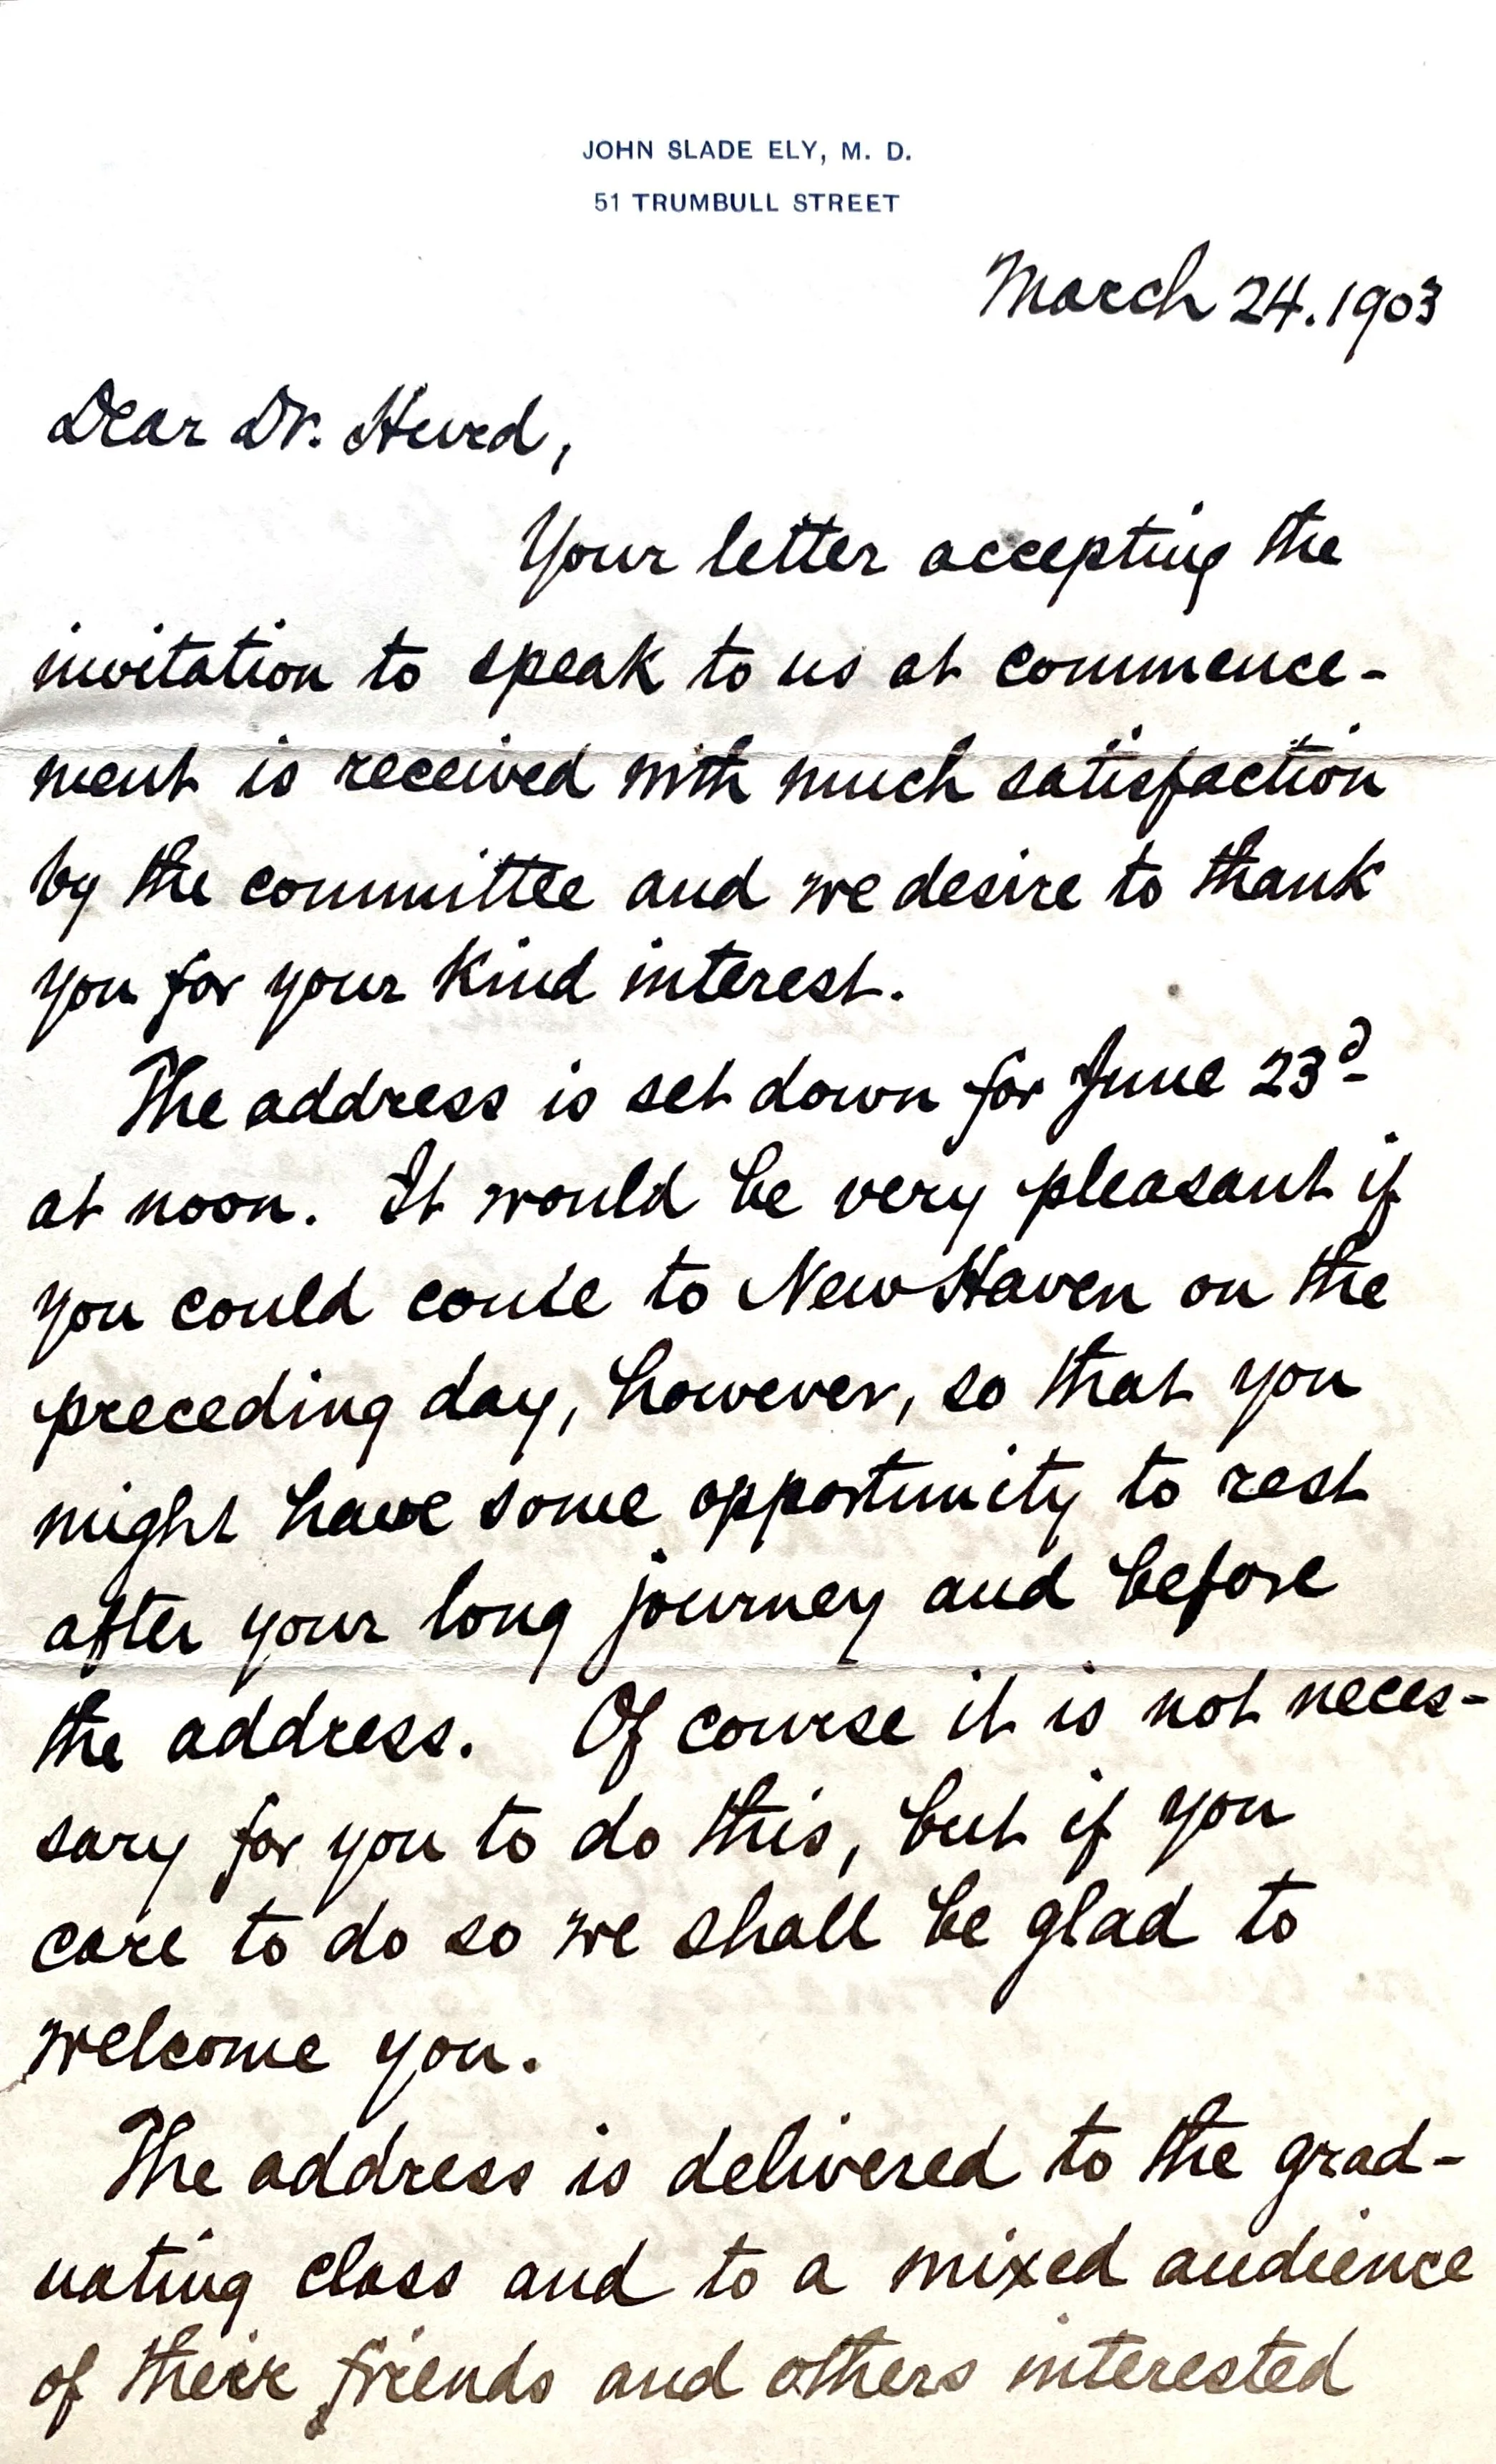 JOHN SLADE ELY, M. D.
51 TRUMBULL STREET
March 24. 1903
Dear Dr. Hurd,
Your letter accepting the
invitation to speak to us at commence-
ment is received with much satisfaction
by the committee and we desire to thank
you for your kind interest.
The address is set down for June 23d
at noon. It would be very pleasant if
you could come to New Haven on the
preceding day, however, so that you
might have some opportunity to rest
after your long journey and before
the address. Of course it is not neces-
sary for you to do this, but if you
care to do so we shall be glad to
welcome you.
The address is delivered to the grad-
uating class and to a mixed audience
of their friends and others interested